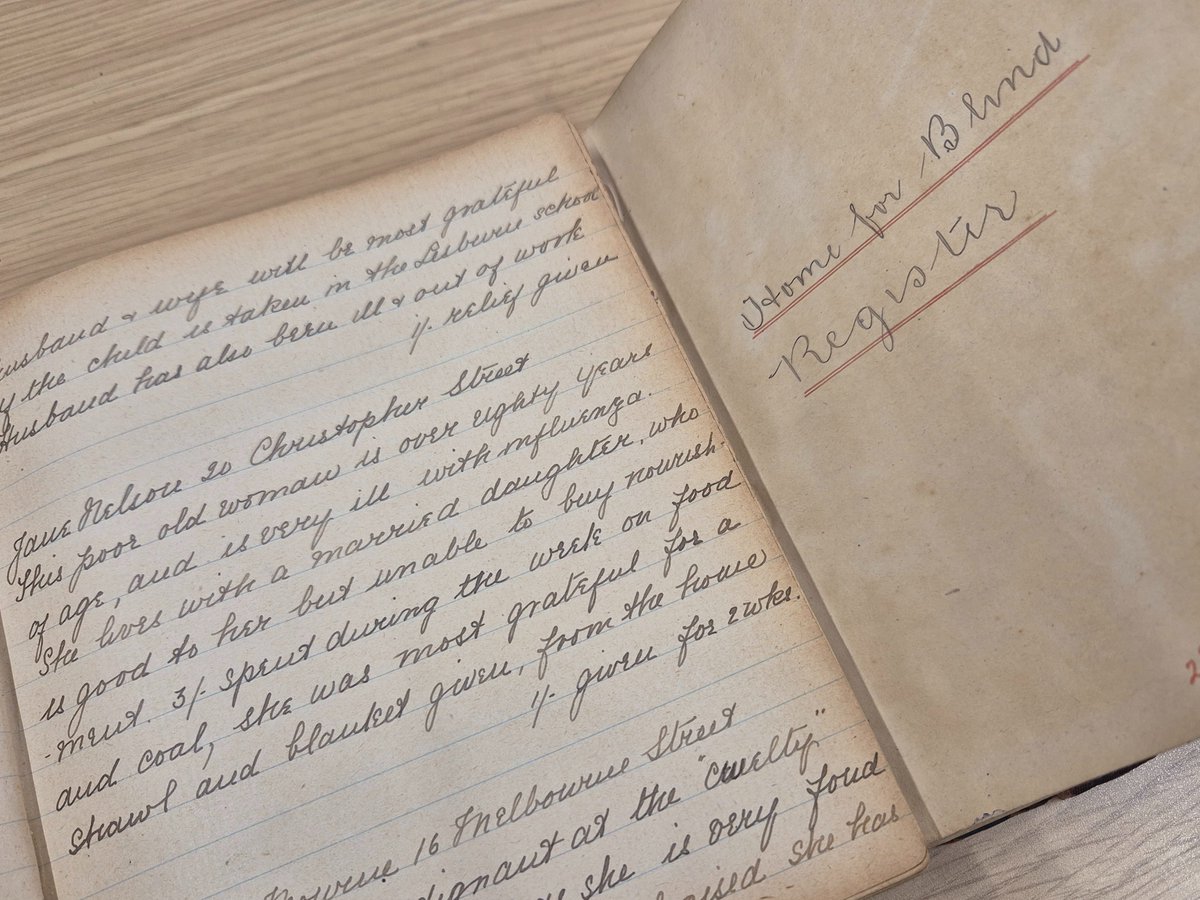 husband & wife will be most grateful
if the child is taken in the Lisburn school
Husband has also been ill & out of work
1/- relief given
Jane Nelson 20 Christopher Street
This poor old woman is over eighty years
of age, and is very ill with influenza.
She lives with a married daughter, who
is good to her but unable to buy nourish-
-ment. 3/- spent during the week on food
and coal, she was most grateful for a
shawl and blanket given, from the home
1/- given for 2 wks.
16 Melbourne Street
at the "cruelty"
she is very fond
she has
Home for Blind
Register